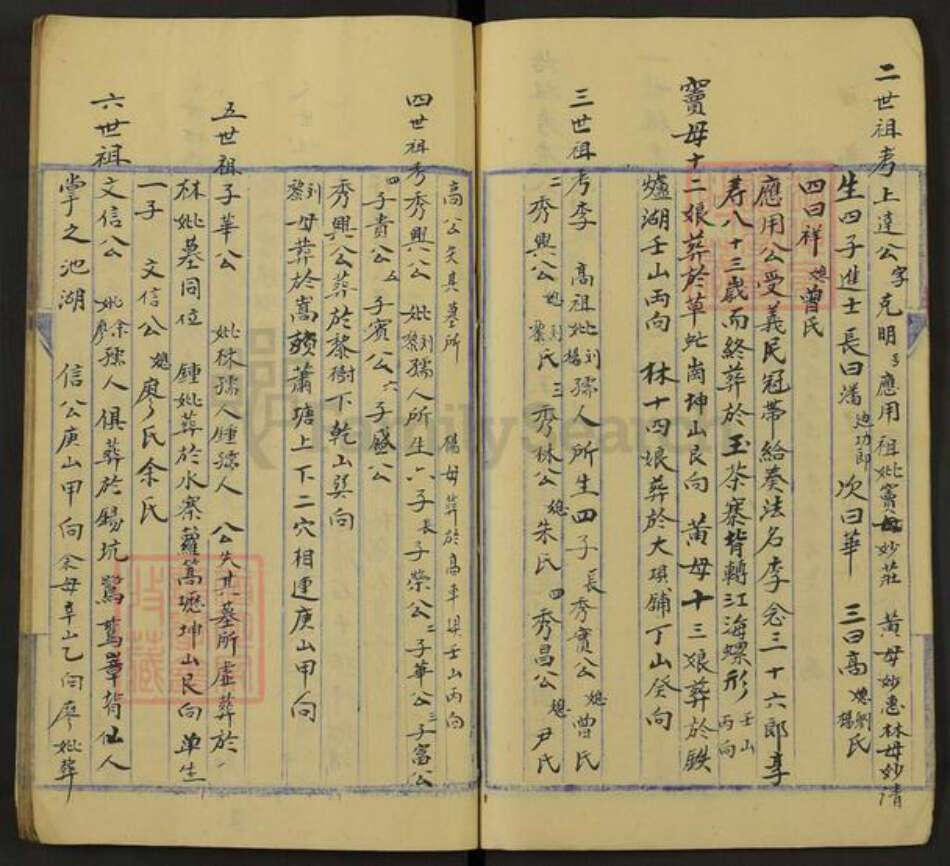 二世祖考上達公字克明号應用祖妣竇母妙莊 黄母妙惠林母妙清
生四子進士長曰潘迪功郎 次曰華 三曰高媳劉楊氏
四曰祥媳曾氏
應用公受義民冠帶給奏法名李念三十六郎享
寿八十三歲而終葬於玉茶寨背轉江海螺形壬山丙向
竇母十二娘葬於草虻崗坤山艮向 黄母十三娘葬於鉄
爐湖壬山丙向 林十四娘葬於大垻鋪丁山癸向
三世祖考李 高祖妣劉楊孺人所生四子長秀實公媳曾氏
二秀興公媳劉黎氏三秀林公媳朱氏 四秀昌公媳尹氏
高公失其墓所 楊母葬於高車壬山丙向
四世祖考秀興公 妣劉黎孺人所生六子長子榮公二子華公三子富公
四子貴公五子賓公六子盛公
秀興公葬於黎樹下乾山巽向
劉黎母葬於嵩頭蕭塘上下二穴相連庚山甲向
五世祖子華公 妣林孺人鍾孺人 公失其墓所虛葬於
林妣墓同位 鍾妣葬於水寨蘿篙壢坤山艮向单生
一子 文信公媳廖氏余氏
六世祖文信公 妣余廖孺人俱葬於錫坑鴛鴦章背仙人
掌之池湖 信公庚山甲向余母辛山乙向廖妣葬
FamilySearch